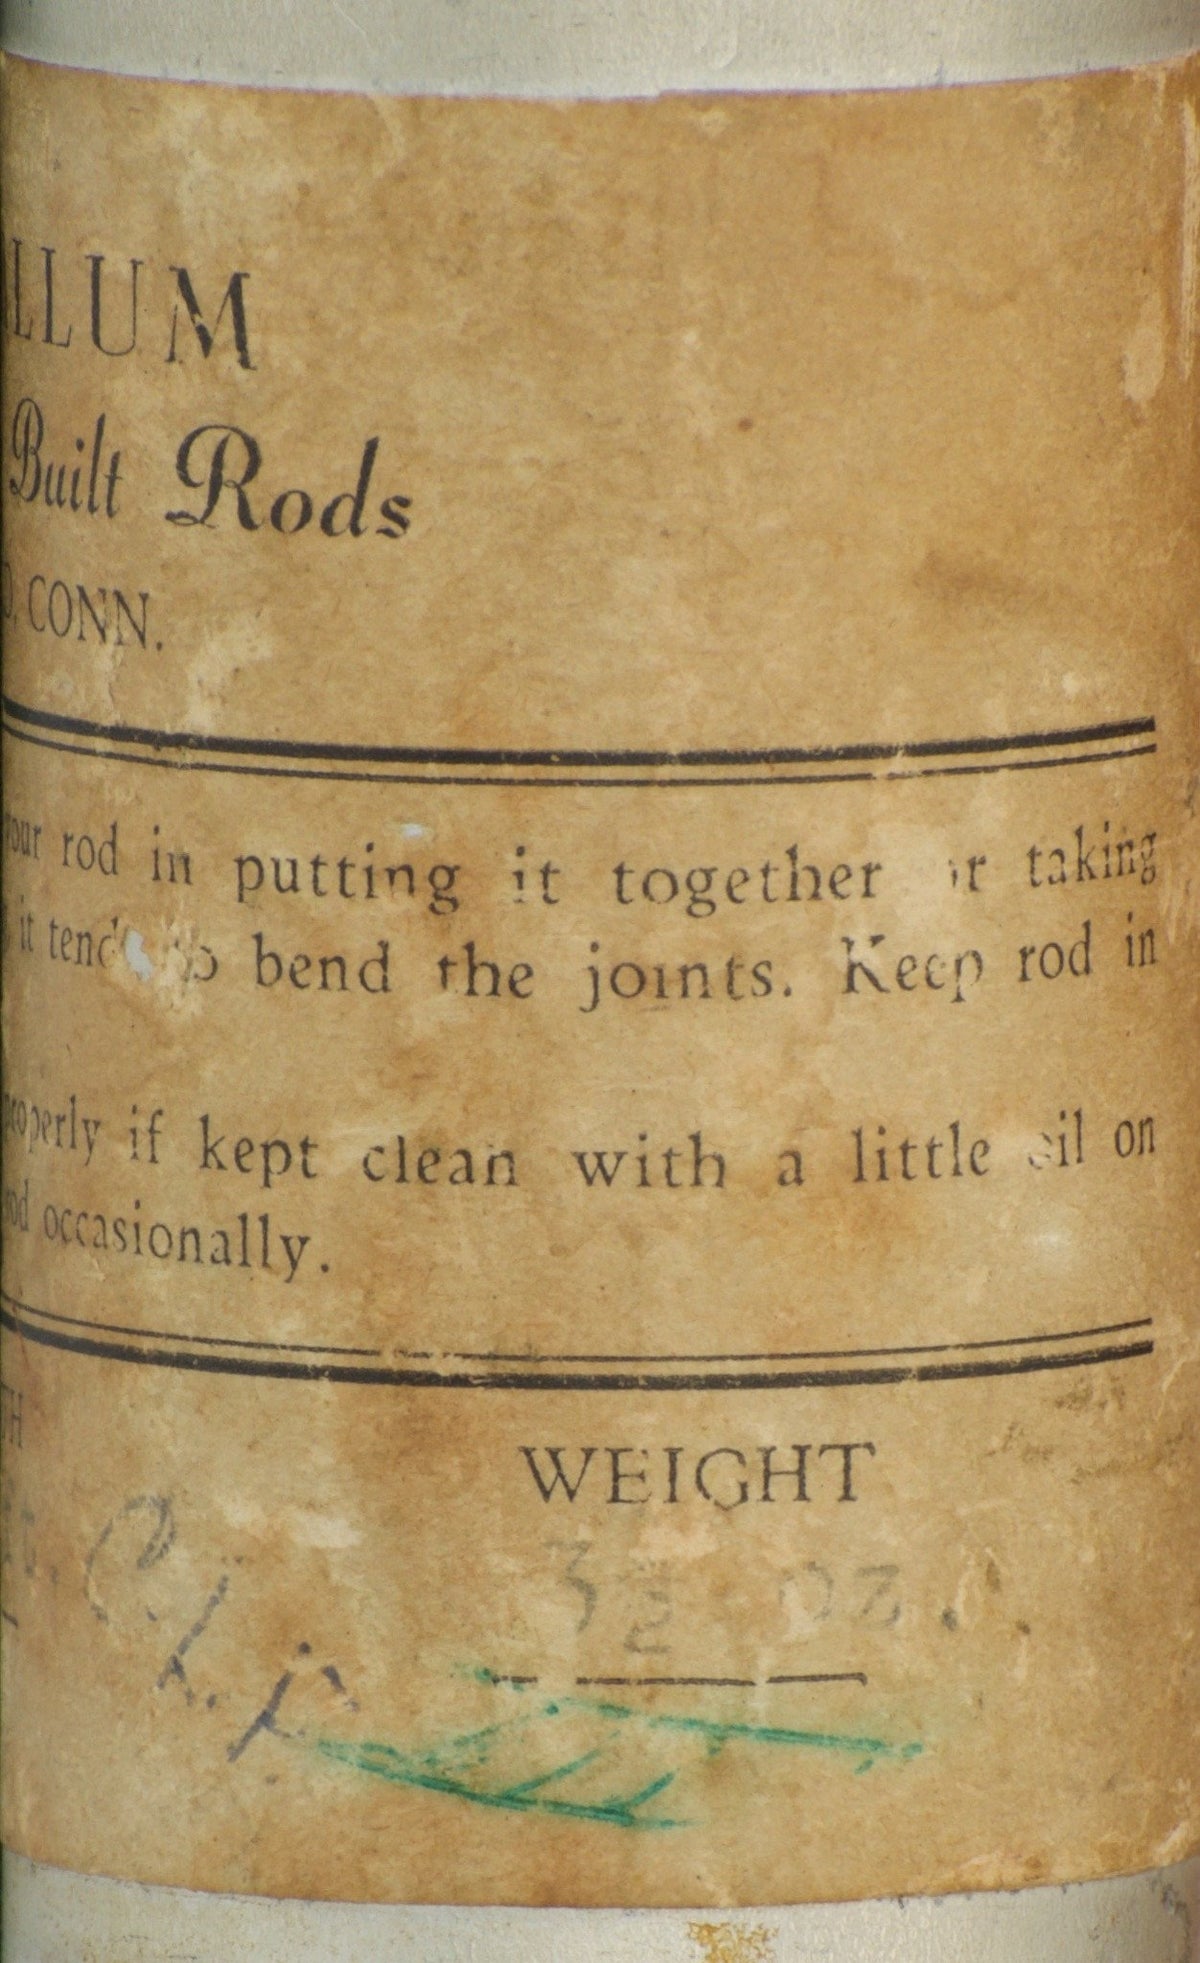 LLUM
Built Rods
CONN.
rod in putting it together or taking
it tends to bend the joints. Keep rod in
if kept clean with a little oil on
occasionally.
WEIGHT
3½ oz.